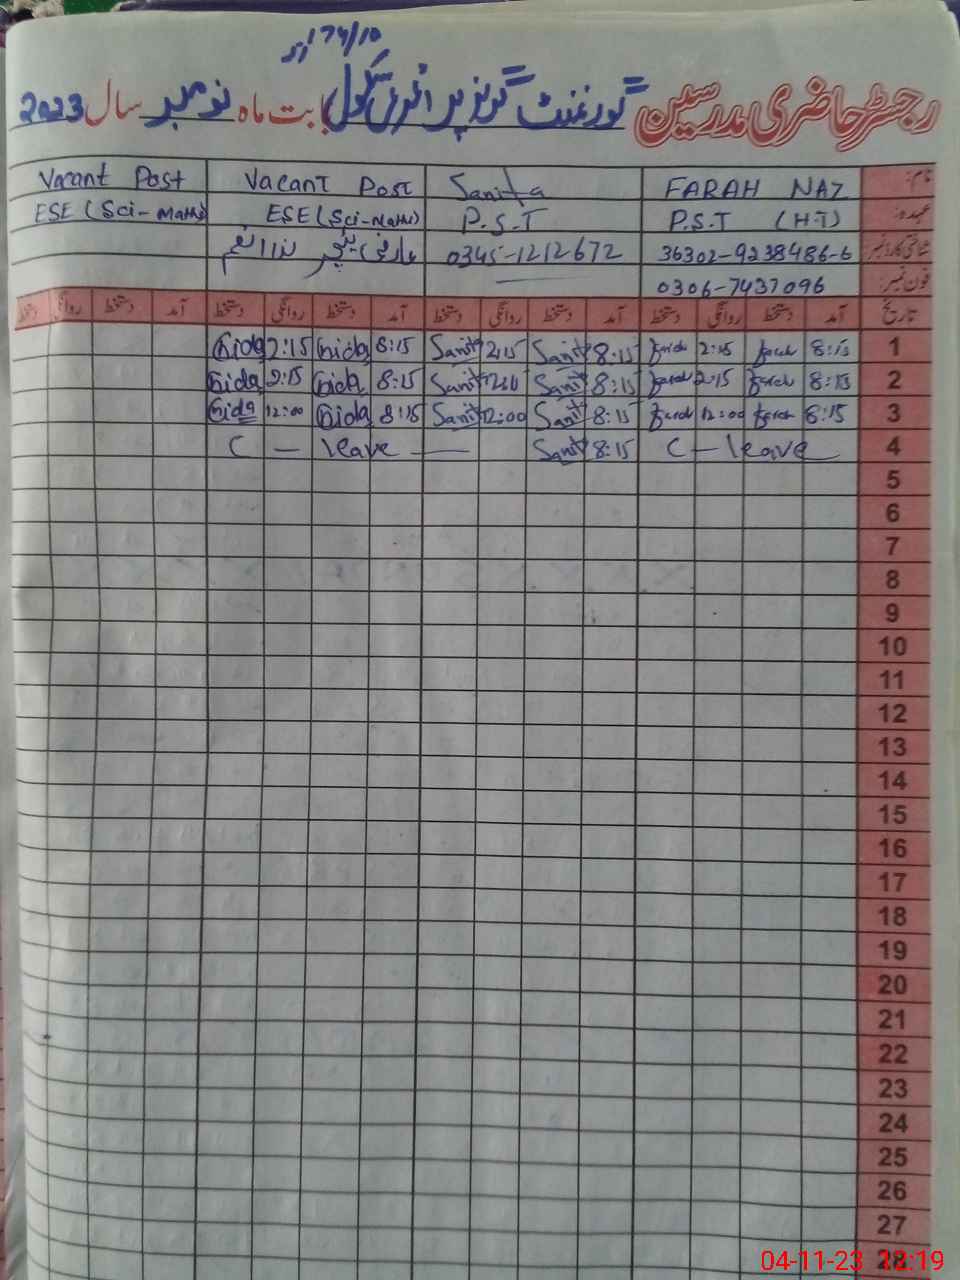 174/10
رجسٹر حاضری مدرسین گورنمنٹ گرلز پرائمری سکول بابت ماہ نومبر سال 2023
نام: FARAH NAZ Sanita Vacant Post Vacant Post
عہدہ: P.S.T (H.T) P.S.T ESE (Sci-Maths) ESE (Sci-Maths)
شناختی کارڈ نمبر 36302-9238486-6 0345-1212672 عارضی ٹیچر
فون نمبر: 0306-7437096
تاریخ آمد دستخط روانگی دستخط آمد دستخط روانگی دستخط آمد دستخط روانگی دستخط آمد دستخط روانگی دستخط
1 8:15 farah 2:15 farah 8:15 Sanita 2:15 Sanita 8:15 Gida 2:15 Gida
2 8:15 farah 2:15 farah 8:15 Sanita Sanita 8:15 Gida 2:15 Gida
3 8:15 farah 12:00 farah 8:15 Sanita 12:00 Sanita 8:15 Gida 12:00 Gida
4 C - leave 8:15 Sanita C - leave
5
6
7
8
9
10
11
12
13
14
15
16
17
18
19
20
21
22
23
24
25
26
27
28
04-11-23 12:19